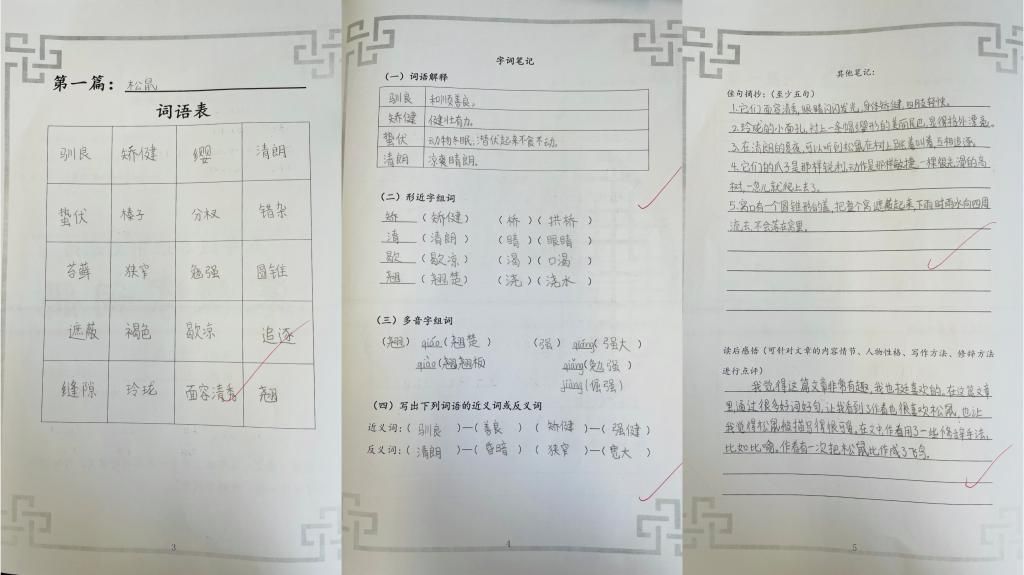 第一篇：松鼠
词语表
驯良 矫健 缨 清朗
蛰伏 榛子 分杈 错杂
苔藓 狭窄 勉强 圆锥
遮蔽 褐色 歇凉 追逐
缝隙 玲珑 面容清秀 翘
3
字词笔记
（一）词语解释
驯良 和顺善良。
矫健 健壮有力。
蛰伏 动物冬眠，潜伏起来不食不动。
清朗 凉爽晴朗。
（二）形近字组词
矫（矫健）（桥）（拱桥）
清（清朗）（睛）（眼睛）
歇（歇凉）（渴）（口渴）
翘（翘楚）（浇）（浇水）
（三）多音字组词
（翘）qiáo（翘楚）（强）qiáng（强大）
qiào（翘翘板）qiǎng（勉强）
jiàng（倔强）
（四）写出下列词语的近义词或反义词
近义词：（驯良）—（善良）（矫健）—（强健）
反义词：（清朗）—（昏暗）（狭窄）—（宽大）
4
其他笔记：
佳句摘抄：（至少五句）
1.它们面容清秀，眼睛闪闪发光，身体矫健，四肢轻快。
2.玲珑的小面孔，衬上一条帽缨形的美丽尾巴，显得格外漂亮。
3.在清朗的夏夜，可以听到松鼠在树上跳着叫着，互相追逐。
4.它们的爪子是那样锐利，动作是那样敏捷，一棵很光滑的高
树，一忽儿就爬上去了。
5.窝口有一个圆锥形的盖，把整个窝遮蔽起来，下雨时雨水向四周
流去，不会落在窝里。
读后感悟（可针对文章的内容情节、人物性格、写作方法、修辞方法
进行点评）
我觉得这篇文章非常有趣，我也挺喜欢的。在这篇文章
里通过很多好词好句，让我看到了作者也很喜欢松鼠，也让
我觉得松鼠被描写得很可爱。在文中作者用了一些修辞手法，
比如比喻。作者有一次把松鼠比作成了飞鸟。
5